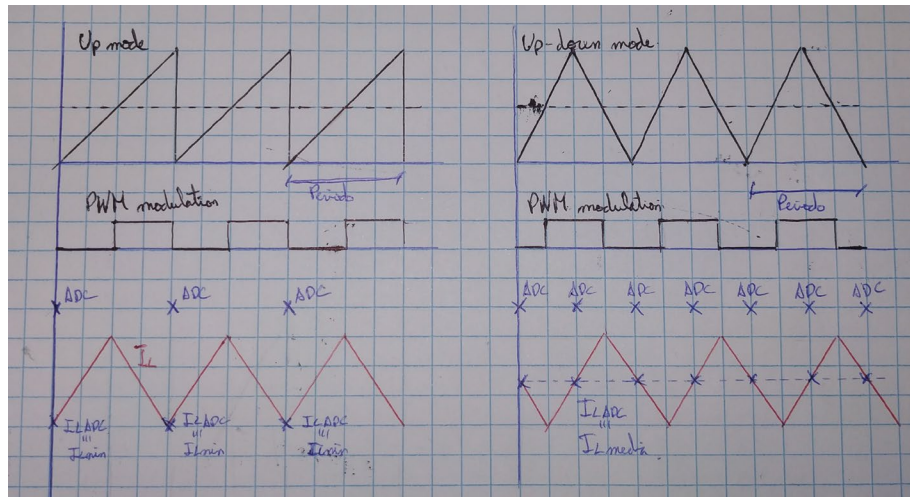 Up mode
Periodo
PWM modulation
ADC ADC ADC
IL
ILADC ILADC ILADC
ILmin ILmin ILmin
Up-down mode
Periodo
PWM modulation
ADC ADC ADC ADC ADC ADC ADC
ILADC
ILmedia